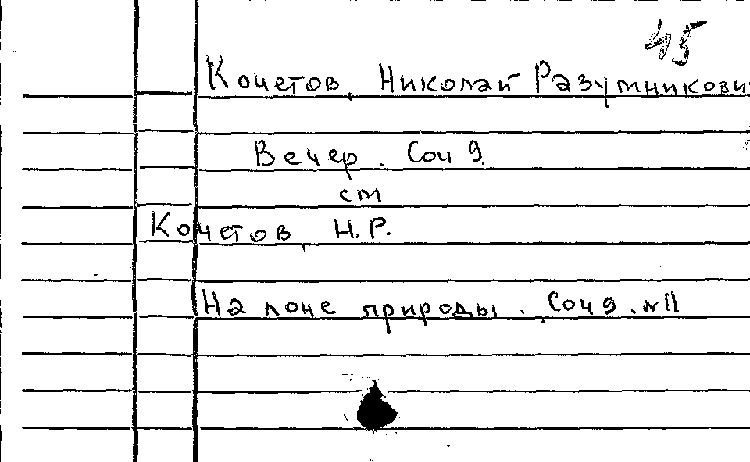 45
Кочетов, Николай Разумникович
Вечер. Соч 9.
ст
Кочетов, Н.Р.
На лоне природы. Соч 9. №11